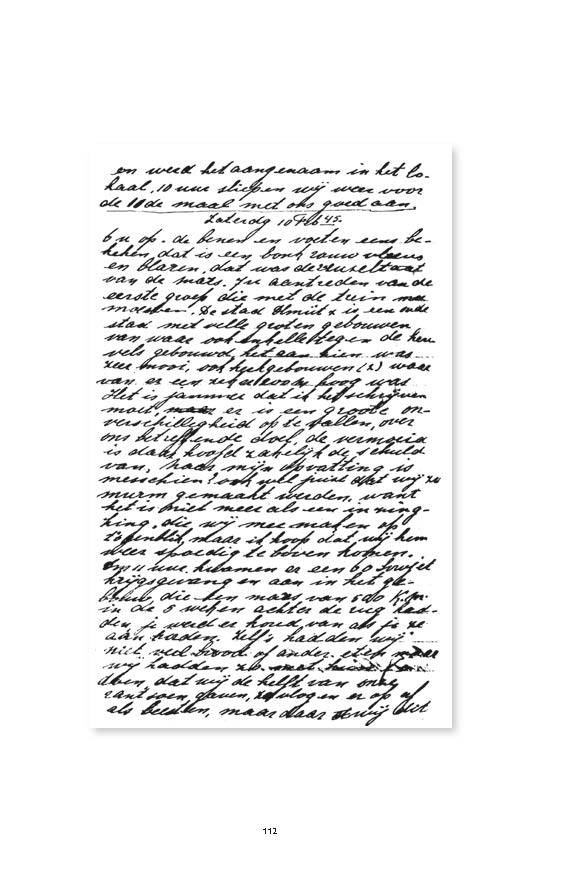 en werd het aangenaam in het lo-
kaal, 10 uur sliepen wij weer voor
de 10de maal met ons goed aan.
Zaterdg 10 Feb 45.
6 u op. de benen en voeten eens be-
keken, dat is een bonk rouw vleess
en blaren, dat was de
van de mars. 7u aantreden van de
eerste groep die met de trein
moesten. De stad Olmütz is een oude
stad met velle groten gebouwen
van waar ook enkelle tegen de heu
vels gebouwd, het aan kien was
zeer mooi, ook kerkgebouwen (2) waar
van er een hoog was
Het is jammer dat ik het schrijven
moet, er is een groote on-
verschilligheid op te vallen, over
ons betreffende doel, de vermoeia
is daar hoofd zakelijk de schuld
van, naar mijn opvatting is
messchien? ook wel juist dat wij zo
murm gemaakt werden, want
het is niet meer als een in zing-
king, die wij mee maken op
't ogenblik, maar ik hoop dat wij hem
weer spoedig te boven komen.
Om 11 uur kwamen er een 60 Sovjet
krijgsgevangen aan in het ge-
bouw, die een mars van 500 K.M.
in de 5 weken achter de rug had-
den, je werd er koud van als je ze
aan haden. Zelfs hadden wij
niet veel brood of ander eten
wij hadden zo met hun
doen, dat wij de helft van onze
rantsoen gaven, ze vlogen er op af
als beesten, maar daar wij dit
112